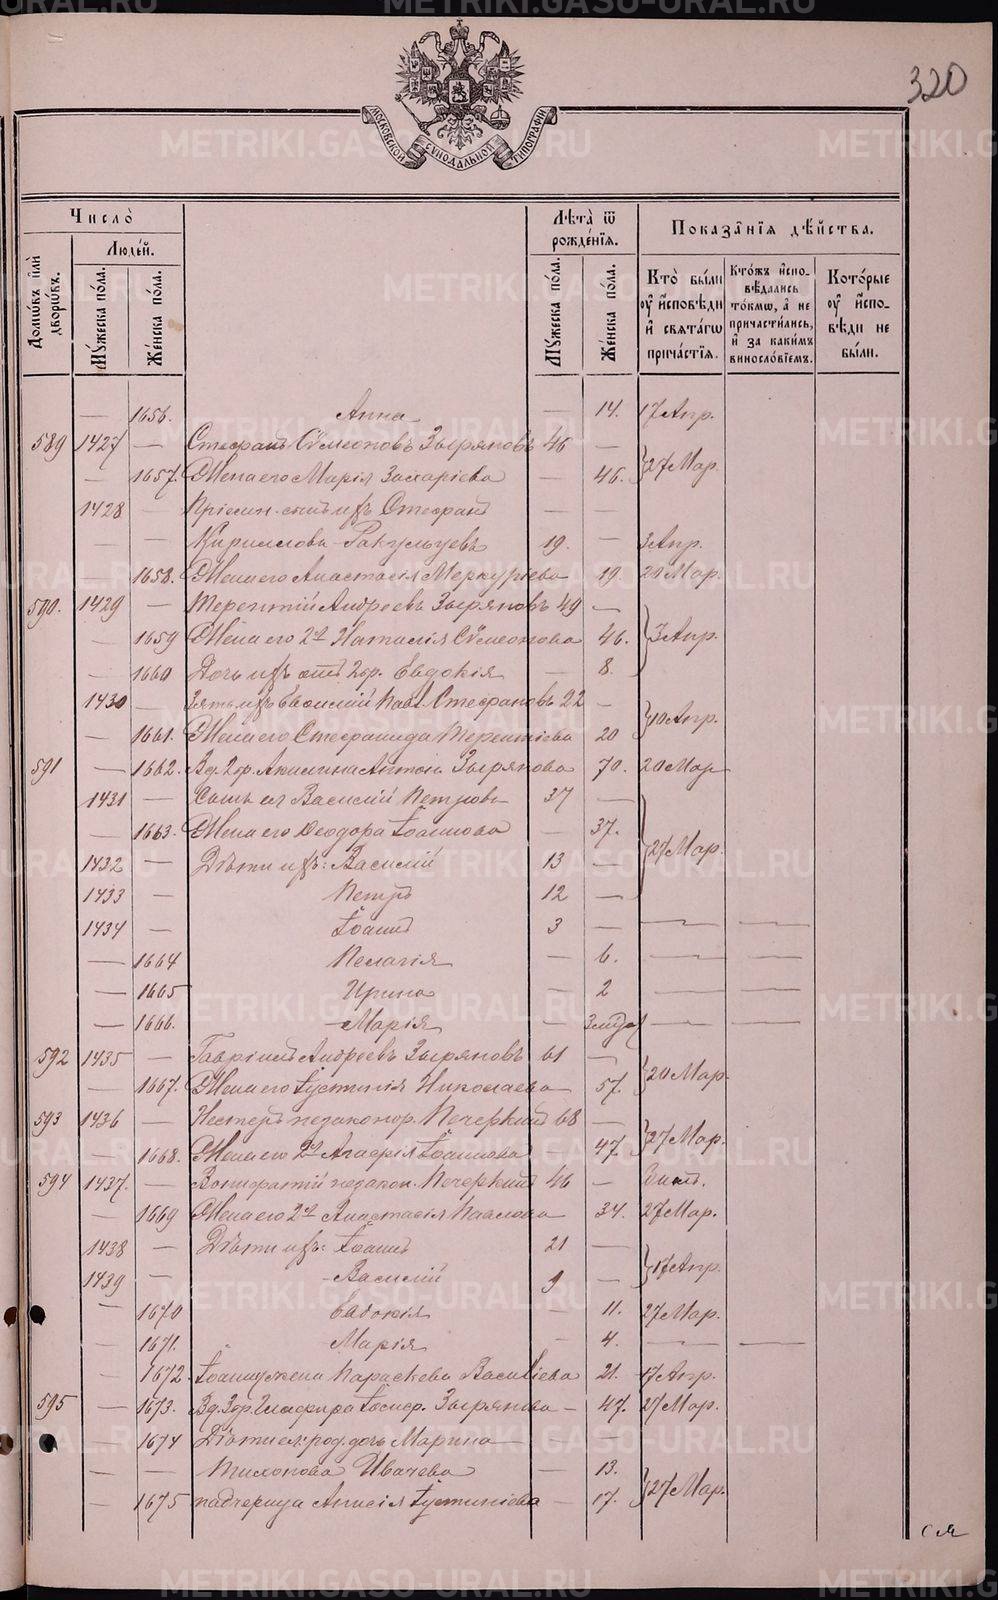 320
МОСКОВСКОЙ СѴНОДАЛЬНОЙ ТИПОГРАФІИ
Число̀
Людей.
Домѡвъ и҆лѝ дворѡвъ.
Мꙋжеска по́ла.
Же́нска по́ла.
Лѣта̀ ѿ рожде́нїѧ.
Мꙋжеска по́ла.
Же́нска по́ла.
Показа̑нїѧ дѣ́йства.
Кто̀ бы́ли оу҆ и҆́сповѣди и҆ свѧта́гѡ прича́стїѧ.
Кто́жъ и҆сповѣ́дались то́кмѡ, а҆ не причасти́лись, и҆ за каки́мъ винослові́емъ.
Кото́рые оу҆ и҆́сповѣди не бы́ли.
— 1656. Анна — 14. 17 Апр.
589 1427 — Стефанъ Сѵмеоновъ Зыряновъ 46 —
— 1657. Жена его Марія Захаріева — 46. } 27 Мар.
1428 — Стефанъ — —
— — Кирилловъ Ракульцевъ 19. — 3 Апр.
— 1658. Жена его Анастасія Меркуріева 19. 20 Мар.
590. 1429 — Терентій Андреевъ Зыряновъ 49 —
— 1659 Жена его 2я Наталія Сѵмеонова 46. } 3 Апр.
— 1660 Дочь ихъ 2 бр. Евдокія — 8.
1430 — Зять ихъ Павл. Стефановъ 22 —
— 1661. Жена его Стефанида Терентіева 20 } 10 Апр.
591 — 1662. Вд. 2 бр. Акилина Антон. Зырянова 70. 20 Мар
1431 — Сынъ ея Василій Петровъ 37 —
— 1663. Жена его Ѳеодора Іоаннова — 37. } 27 Мар.
1432 — Дѣти ихъ: Василій 13 —
1433 — Петръ 12 —
1434 — Іоаннъ 3 — — —
— 1664 Пелагія — 6. — —
— 1665 Ирина — 2 — —
— 1666. Марія — — —
592 1435 — Гавріилъ Андреевъ Зыряновъ 61 —
— 1667. Жена его Іустинія Николаева 57. } 20 Мар.
593 1436 — Несторъ незаконор. Печеркинъ 68 —
— 1668. Жена его 2я Агафія Іоаннова 47. } 27 Мар.
594 1437. — Вонифатій незакон. Печеркинъ 46 —
— 1669 Жена его 2я Анастасія Павлова 34. 27 Мар.
1438 — Дѣти ихъ: Іоаннъ 21 —
1439 — Василій 9 — } 17 Апр.
— 1670 Евдокія — 11. 27 Мар.
— 1671. Марія — 4. — —
— 1672. Іоанну жена Параскева Василіева 21. 17 Апр.
595 — 1673. Вд. 3 бр. Глафира Іосиф. Зырянова — 47. 27 Мар.
— 1674 Дѣти ея: род. дочь Марина — —
— — Тихонова Ивачева — 13.
— 1675 падчерица Анисія Іустинова — 17. } 27 Мар.
ся
METRIKI.GASO-URAL.RU